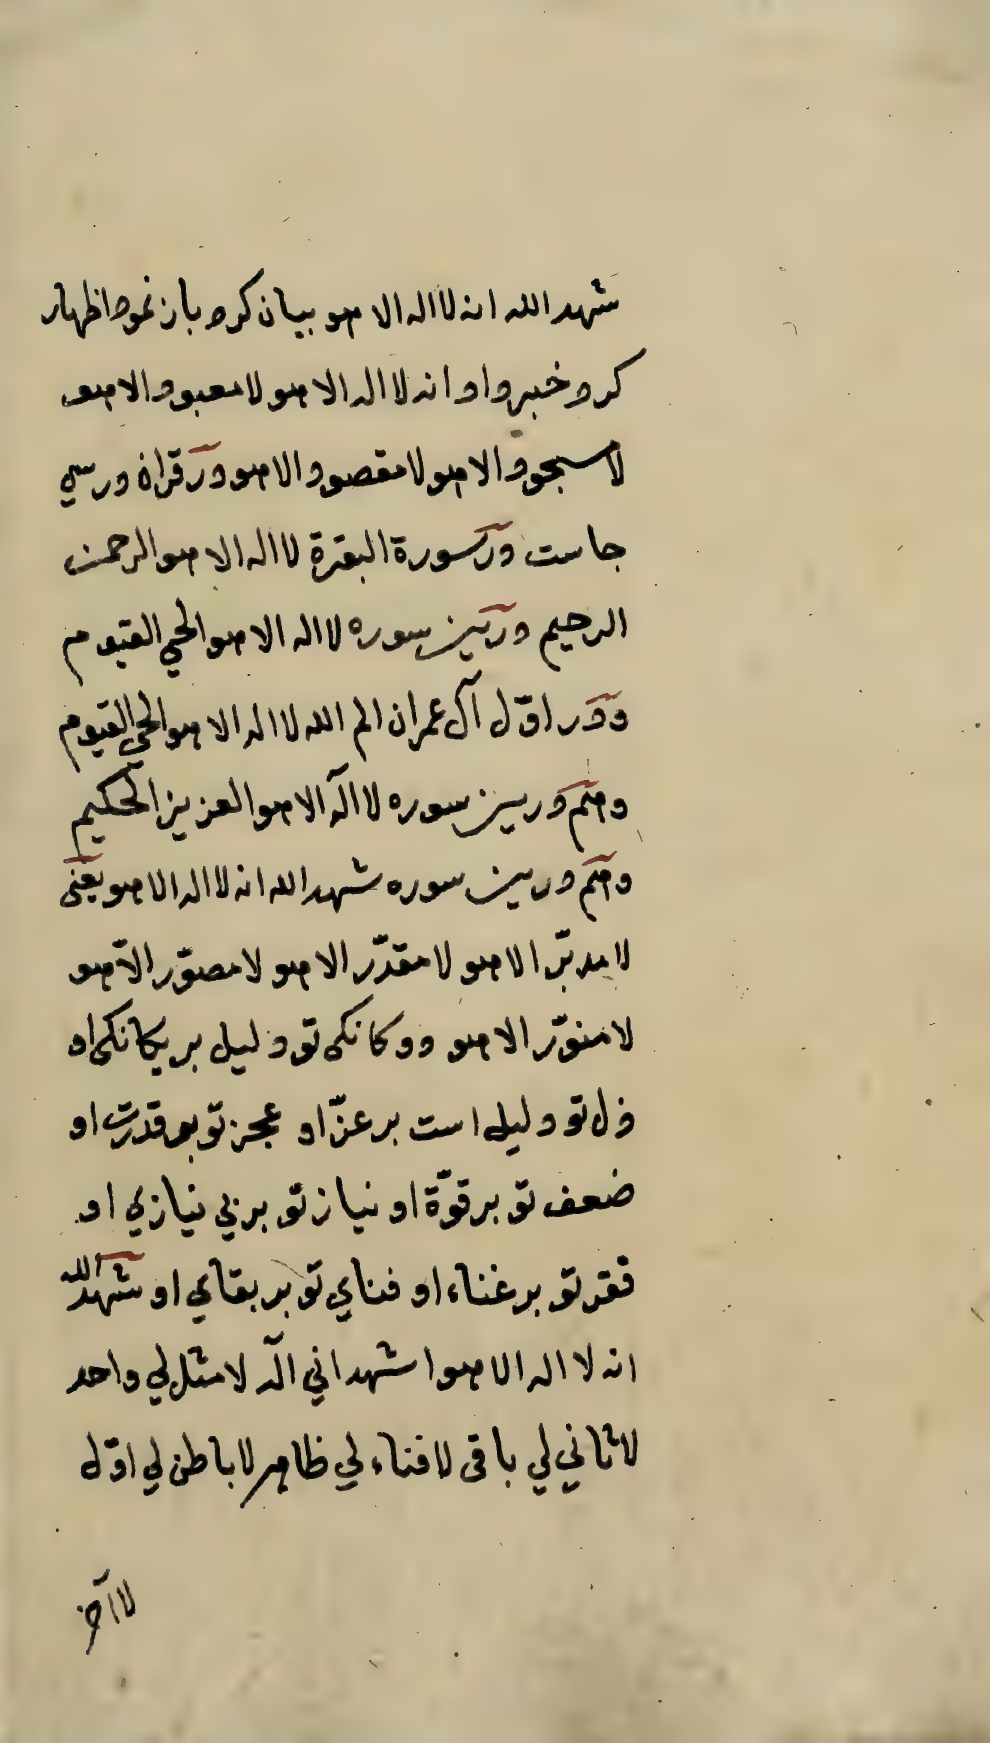 شهد الله انه لا اله الا هو بیان کرد باز نمود اظهار
کرد خبر داد انه لا اله الا هو لا معبود الا هو
لا مسجود الا هو لا مقصود الا هو در قران در سی
جاست در سورة البقرة لا اله الا هو الرحمن
الرحیم در آیین سوره لا اله الا هو الحی القیوم
و در اوّل آل عمران الم الله لا اله الا هو الحی القیوم
و هم درین سوره لا اله الا هو العزیز الحکیم
و هم درین سوره شهد الله انه لا اله الا هو یعنی
لا مدبّر الا هو لا مقدّر الا هو لا مصوّر الّا هو
لا منوّر الا هو دوکانکی تو دلیل بر یکانکی او
ذل تو دلیل است بر عزّ او عجز تو بر قدرت او
ضعف تو بر قوّة او نیاز تو بر بی نیازی او
فقر تو بر غناء او فنای تو بر بقای او شهد الله
انه لا اله الا هو اشهد انی الٓه لا مثل لی واحد
لا ثانی لی باقی لا فناء لی ظاهر لا باطن لی اوّل
لا آخر